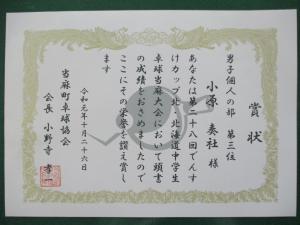 賞状
男子個人の部 第三位
小原 奏社 様
あなたは第二十八回でんす
けカップ北・北海道中学生
卓球当麻大会において頭書
の成績をおさめましたので
ここにその栄誉を讃え賞し
ます
令和元年十月二十六日
当麻町卓球協会
会長 小野寺 孝一